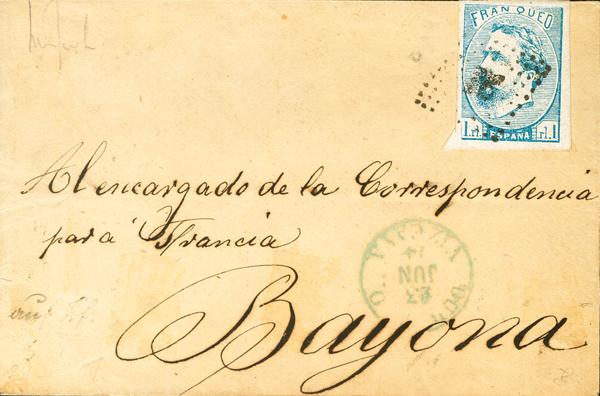 FRANQUEO
1 rl. ESPAÑA rl. 1
Al encargado de la Correspondencia
para Francia
Bayona
23
JUN
74